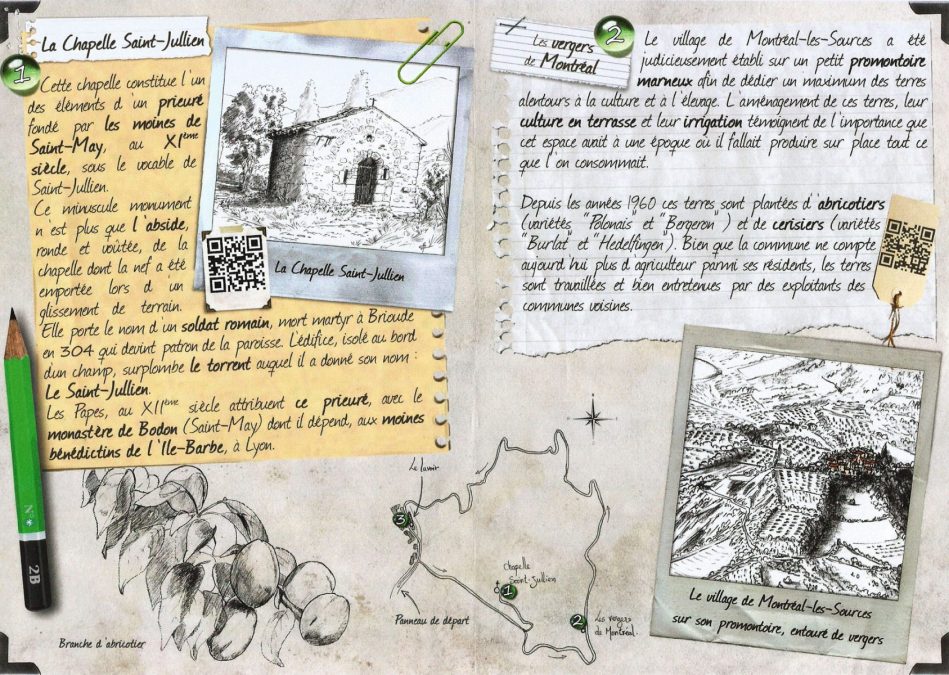 La Chapelle Saint-Jullien
1
Cette chapelle constitue l'un
des éléments d'un prieuré
fondé par les moines de
Saint-May, au XIème
siècle, sous le vocable de
Saint-Jullien.
Ce minuscule monument
n'est plus que l'abside,
ronde et voûtée, de la
chapelle dont la nef a été
emportée lors d'un
glissement de terrain.
Elle porte le nom d'un soldat romain, mort martyr à Brioude
en 304 qui devint patron de la paroisse. L'édifice, isolé au bord
d'un champ, surplombe le torrent auquel il a donné son nom :
Le Saint-Jullien.
Les Papes, au XIIème siècle attribuent ce prieuré, avec le
monastère de Bodon (Saint-May) dont il dépend, aux moines
bénédictins de l'Ile-Barbe, à Lyon.
La Chapelle Saint-Jullien
N°*
2B
Branche d'abricotier
Les vergers
de Montréal
2
Le village de Montréal-les-Sources a été
judicieusement établi sur un petit promontoire
marneux afin de dédier un maximum des terres
alentours à la culture et à l'élevage. L'aménagement de ces terres, leur
culture en terrasse et leur irrigation témoignent de l'importance que
cet espace avait à une époque où il fallait produire sur place tout ce
que l'on consommait.
Depuis les années 1960 ces terres sont plantées d'abricotiers
(variétés "Polonais" et "Bergeron") et de cerisiers (variétés
"Burlat" et "Hedelfingen"). Bien que la commune ne compte
aujourd'hui plus d'agriculteur parmi ses résidents, les terres
sont travaillées et bien entretenues par des exploitants des
communes voisines.
Le lavoir
3
Chapelle
Saint-Jullien
1
2
Les vergers
de Montréal
Panneau de départ
Le village de Montréal-les-Sources
sur son promontoire, entouré de vergers